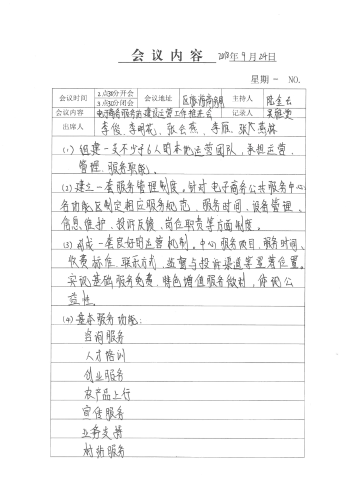 会议内容 2018年9月24日
星期一 NO.
会议时间 2点30分开会 会议地址 主持人
5点30分闭会
会议内容 电子商务服务站建设运营工作推进会 记录人
出席人 李俊、李明花、张会燕、李雁、张
(1) 组建一支不少于6人的本地运营团队,承担运营、
管理、服务职能。
(2) 建立一套服务管理制度。针对电子商务公共服务中心
各功能区制定相应服务规范、服务时间、设备管理、
信息维护、投诉反馈、岗位职责等方面制度。
(3) 形成一套良好的运营机制。中心服务项目、服务时间、
收费标准、联系方式、监督与投诉渠道等显著位置。
实现基础服务免费,特色增值服务微利,体现公
益性。
(4) 基本服务功能:
咨询服务
人才培训
创业服务
农产品上行
宣传服务
业务支撑
村站服务